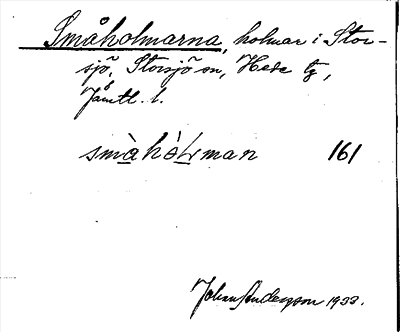 Småholmarna, holmar i Stor-
sjö, Storsjö sn, Hede tg,
Jämtl. l.
småhòlman 161
Johan Andersson 1933.